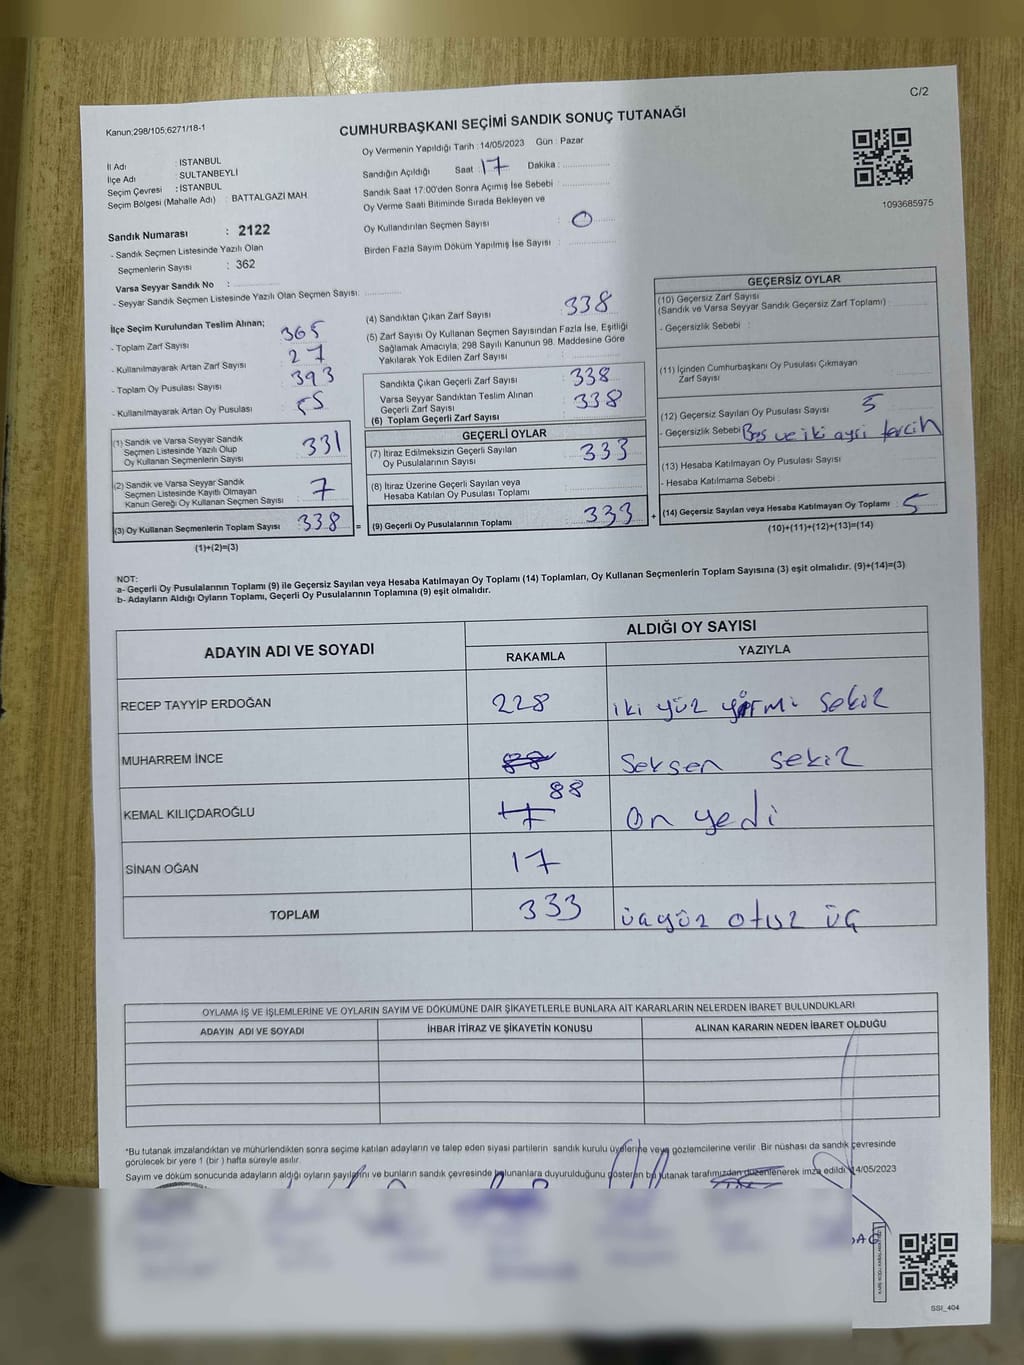 C/2
Kanun;298/105;6271/18-1
CUMHURBAŞKANI SEÇİMİ SANDIK SONUÇ TUTANAĞI
İl Adı : ISTANBUL
İlçe Adı : SULTANBEYLİ
Seçim Çevresi : İSTANBUL
Seçim Bölgesi (Mahalle Adı) : BATTALGAZI MAH
Sandık Numarası : 2122
- Sandık Seçmen Listesinde Yazılı Olan
Seçmenlerin Sayısı : 362
Varsa Seyyar Sandık No :
- Seyyar Sandık Seçmen Listesinde Yazılı Olan Seçmen Sayısı:
Oy Vermenin Yapıldığı Tarih : 14/05/2023 Gün : Pazar
Sandığın Açıldığı Saat 17 Dakika :
Sandık Saat 17:00'den Sonra Açımış İse Sebebi
Oy Verme Saati Bitiminde Sırada Bekleyen ve
Oy Kullandırılan Seçmen Sayısı : 0
Birden Fazla Sayım Döküm Yapılmış İse Sayısı :
1093685975
İlçe Seçim Kurulundan Teslim Alınan;
- Toplam Zarf Sayısı 365
- Kullanılmayarak Artan Zarf Sayısı 27
- Toplam Oy Pusulası Sayısı 393
- Kullanılmayarak Artan Oy Pusulası 55
(1) Sandık ve Varsa Seyyar Sandık
Seçmen Listesinde Yazılı Olup
Oy Kullanan Seçmenlerin Sayısı 331
(2) Sandık ve Varsa Seyyar Sandık
Seçmen Listesinde Kayıtlı Olmayan
Kanun Gereği Oy Kullanan Seçmen Sayısı 7
(3) Oy Kullanan Seçmenlerin Toplam Sayısı 338 =
(1)+(2)=(3)
(4) Sandıktan Çıkan Zarf Sayısı 338
(5) Zarf Sayısı Oy Kullanan Seçmen Sayısından Fazla İse, Eşitliği
Sağlamak Amacıyla; 298 Sayılı Kanunun 98. Maddesine Göre
Yakılarak Yok Edilen Zarf Sayısı :
Sandıkta Çıkan Geçerli Zarf Sayısı 338
Varsa Seyyar Sandıktan Teslim Alınan
Geçerli Zarf Sayısı 338
(6) Toplam Geçerli Zarf Sayısı
GEÇERLİ OYLAR
(7) İtiraz Edilmeksizin Geçerli Sayılan
Oy Pusulalarının Sayısı 333
(8) İtiraz Üzerine Geçerli Sayılan veya
Hesaba Katılan Oy Pusulası Toplamı
(9) Geçerli Oy Pusulalarının Toplamı 333 +
GEÇERSİZ OYLAR
(10) Geçersiz Zarf Sayısı
(Sandık ve Varsa Seyyar Sandık Geçersiz Zarf Toplamı)
- Geçersizlik Sebebi :
(11) İçinden Cumhurbaşkanı Oy Pusulası Çıkmayan
Zarf Sayısı
(12) Geçersiz Sayılan Oy Pusulası Sayısı 5
- Geçersizlik Sebebi Boş ve iki ayrı tercih
(13) Hesaba Katılmayan Oy Pusulası Sayısı
- Hesaba Katılmama Sebebi :
(14) Geçersiz Sayılan veya Hesaba Katılmayan Oy Toplamı 5
(10)+(11)+(12)+(13)=(14)
NOT:
a- Geçerli Oy Pusulalarının Toplamı (9) ile Geçersiz Sayılan veya Hesaba Katılmayan Oy Toplamı (14) Toplamları, Oy Kullanan Seçmenlerin Toplam Sayısına (3) eşit olmalıdır. (9)+(14)=(3)
b- Adayların Aldığı Oyların Toplamı, Geçerli Oy Pusulalarının Toplamına (9) eşit olmalıdır.
ADAYIN ADI VE SOYADI
ALDIĞI OY SAYISI
RAKAMLA YAZIYLA
RECEP TAYYİP ERDOĞAN 228 iki yüz yirmi sekiz
MUHARREM İNCE 88 Seksen sekiz
KEMAL KILIÇDAROĞLU 17 88 On yedi
SİNAN OĞAN 17
TOPLAM 333 üçyüz otuz üç
OYLAMA İŞ VE İŞLEMLERİNE VE OYLARIN SAYIM VE DÖKÜMÜNE DAİR ŞİKAYETLERLE BUNLARA AİT KARARLARIN NELERDEN İBARET BULUNDUKLARI
ADAYIN ADI VE SOYADI İHBAR İTİRAZ VE ŞİKAYETİN KONUSU ALINAN KARARIN NEDEN İBARET OLDUĞU
*Bu tutanak imzalandıktan ve mühürlendikten sonra seçime katılan adayların ve talep eden siyasi partilerin sandık kurulu üyelerine veya gözlemcilerine verilir. Bir nüshası da sandık çevresinde
görülecek bir yere 1 (bir) hafta süreyle asılır.
Sayım ve döküm sonucunda adayların aldığı oyların sayılarını ve bunların sandık çevresinde bulunanlara duyurulduğunu gösteren bu tutanak tarafımızdan düzenlenerek imza edildi. 14/05/2023
SSI_404